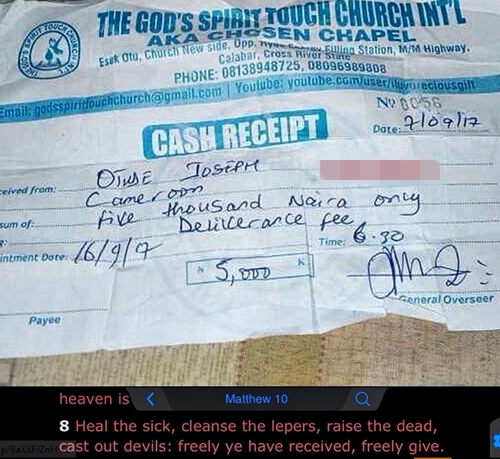 THE GOD'S SPIRIT TOUCH CHURCH INT'L
AKA CHOSEN CHAPEL
Esuk Otu, Church New side, Opp. Filling Station, M/M Highway,
Calabar, Cross River State
PHONE: 08138948725, 08096989808
Email: godsspirittouchchurch@gmail.com | Youtube: youtube.com/user/
Nº 0056
CASH RECEIPT
Date: 7/09/17
ceived from: OTUDE JOSEPH
Cameroon
sum of: five thousand Naira only
Deliverance fee
intment Date: 16/9/17 Time: 6.30
N 5,000 K
General Overseer
Payee
heaven is
Matthew 10
8 Heal the sick, cleanse the lepers, raise the dead,
cast out devils: freely ye have received, freely give.